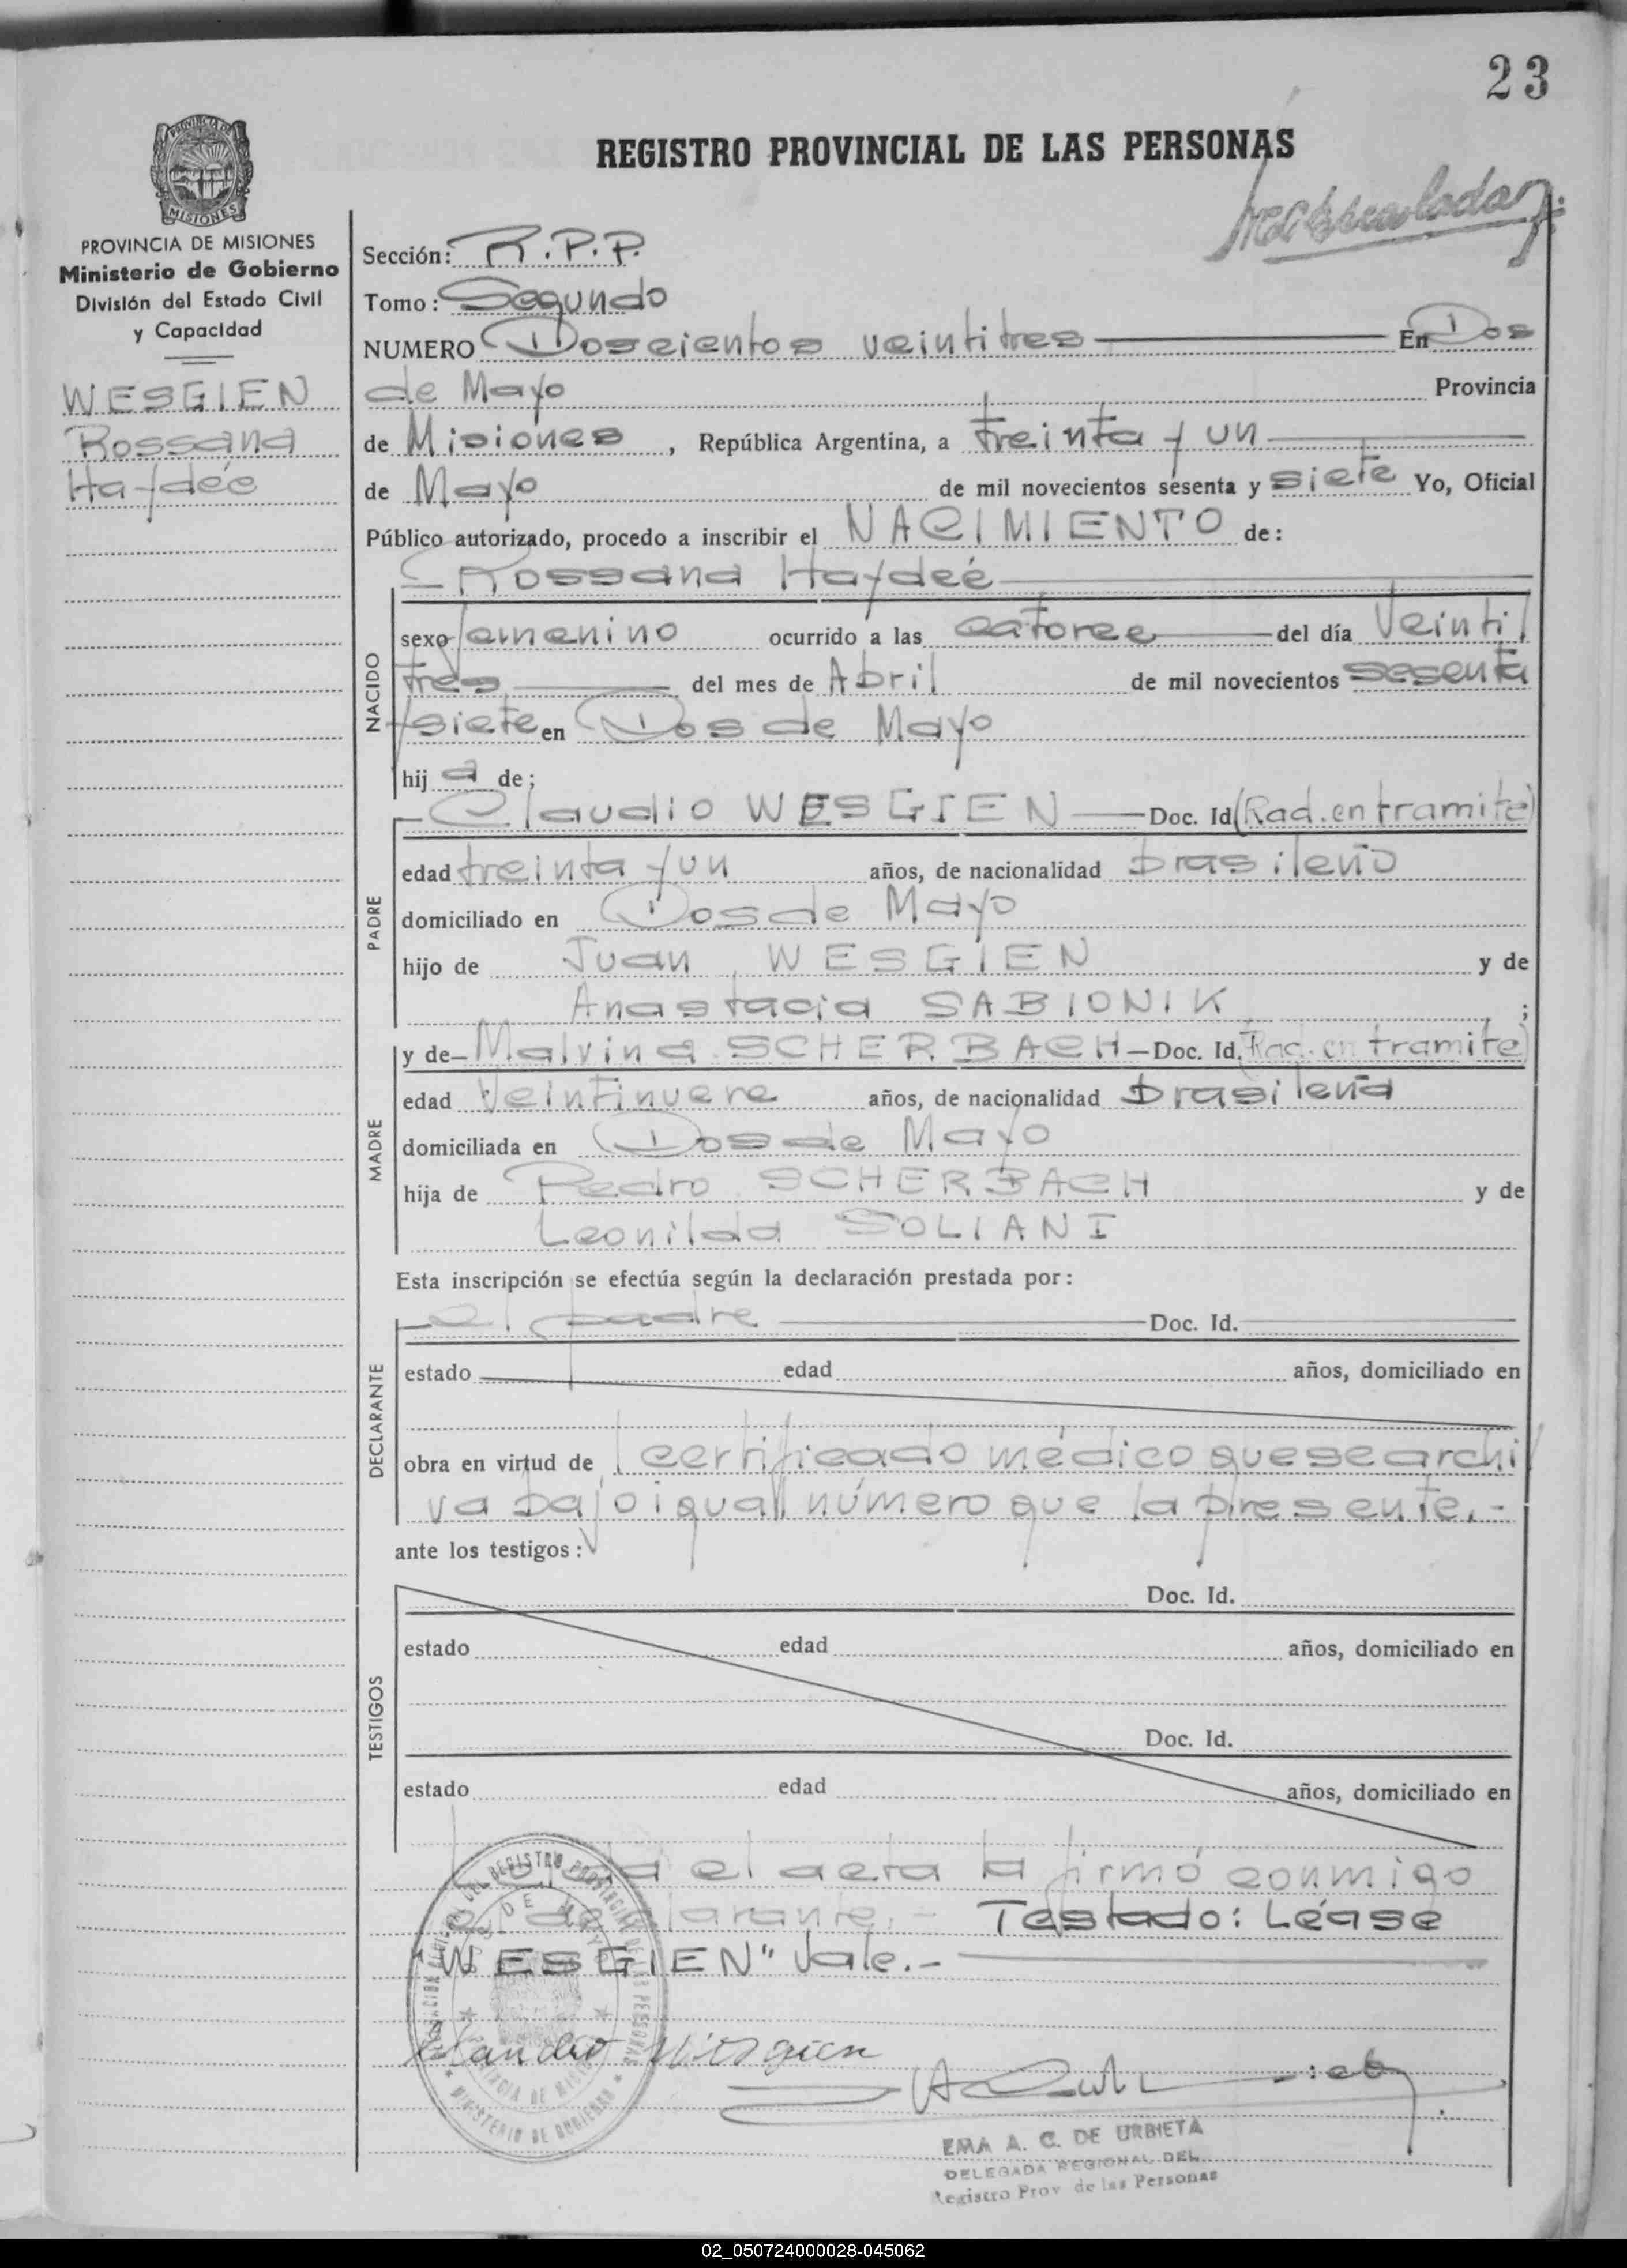 23
REGISTRO PROVINCIAL DE LAS PERSONAS
PROVINCIA DE
MISIONES
PROVINCIA DE MISIONES
Ministerio de Gobierno
División del Estado Civil
y Capacidad
WESGIEN
Rossana
Haydeé
Sección: R.P.P.
Tomo: Segundo
NUMERO Doscientos veintitres En Dos
de Mayo Provincia
de Misiones, República Argentina, a treinta y un
de Mayo de mil novecientos sesenta y siete Yo, Oficial
Público autorizado, procedo a inscribir el NACIMIENTO de:
Rossana Haydeé
NACIDO
sexo femenino ocurrido a las catorce del día Veinti
tres del mes de Abril de mil novecientos sesenta
y siete en Dos de Mayo
hija de;
PADRE
Claudio WESGIEN Doc. Id (Rad. en tramite)
edad treinta y un años, de nacionalidad brasileño
domiciliado en Dos de Mayo
hijo de Juan WESGIEN y de
Anastacia SABIONIK ;
MADRE
y de Malvina SCHERBACH Doc. Id. Rad. en tramite)
edad Veintinueve años, de nacionalidad brasileña
domiciliada en Dos de Mayo
hija de Pedro SCHERBACH y de
Leonilda SOLIANI
Esta inscripción se efectúa según la declaración prestada por:
DECLARANTE
el padre Doc. Id.
estado edad años, domiciliado en
obra en virtud de certificado médico que se archi
va bajo igual número que la presente.-
ante los testigos:
TESTIGOS
Doc. Id.
estado edad años, domiciliado en
Doc. Id.
estado edad años, domiciliado en
el acta la firmó conmigo
Testado: Léase
"WESGIEN" Vale.-
Claudio Wesgien
EMA A. C. DE URBIETA
DELEGADA REGIONAL DEL
Registro Prov de las Personas
02_050724000028-045062